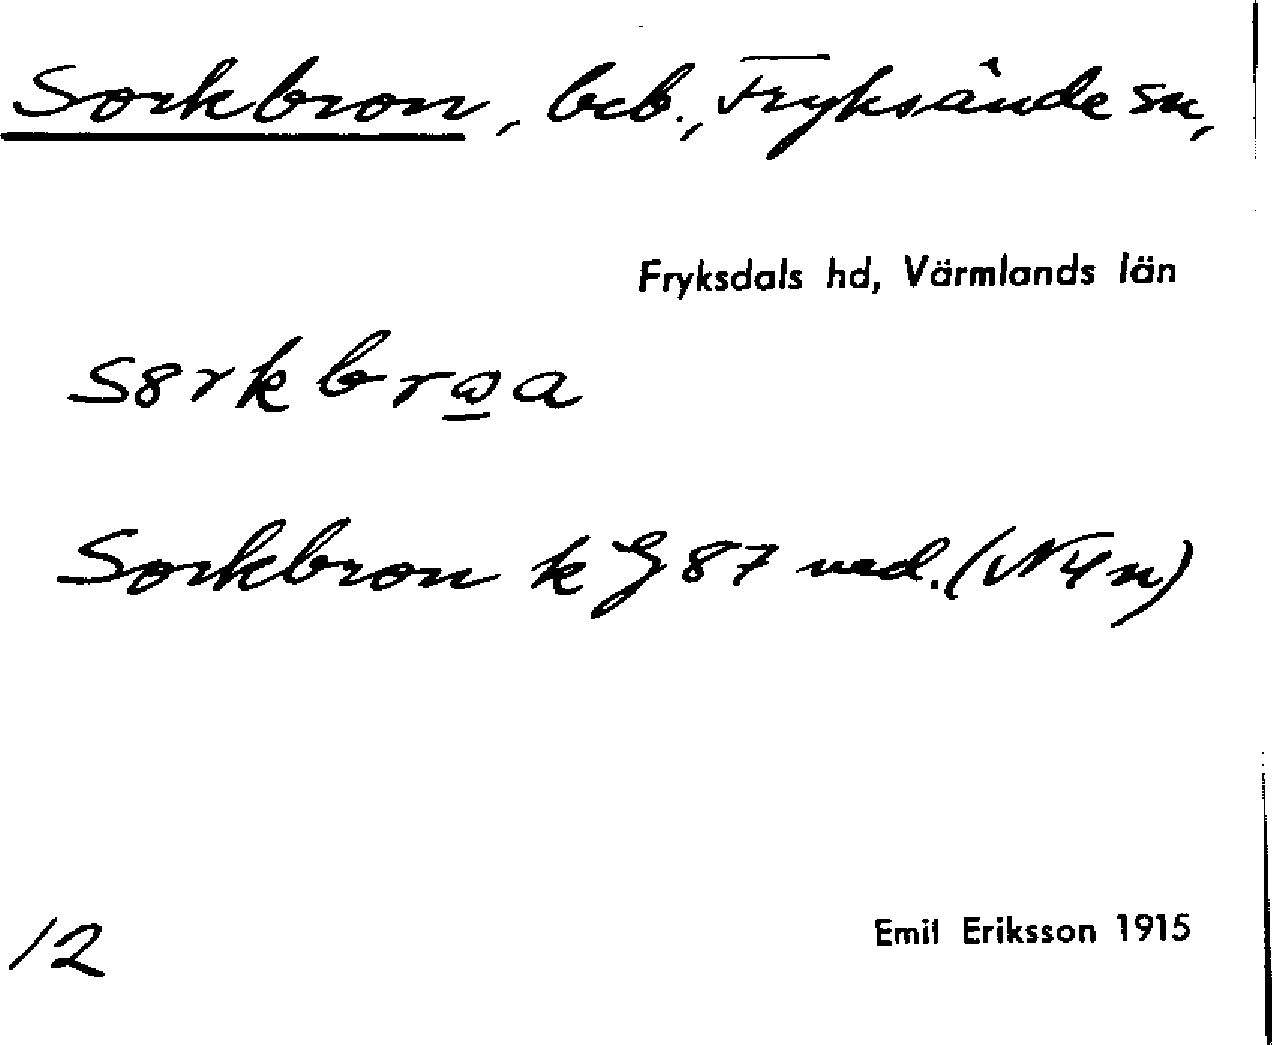 Sorkbron, beb., Fryksände sn,
Fryksdals hd, Värmlands län
Sorkbron k G 87 ned. (N4n)
12
Emil Eriksson 1915